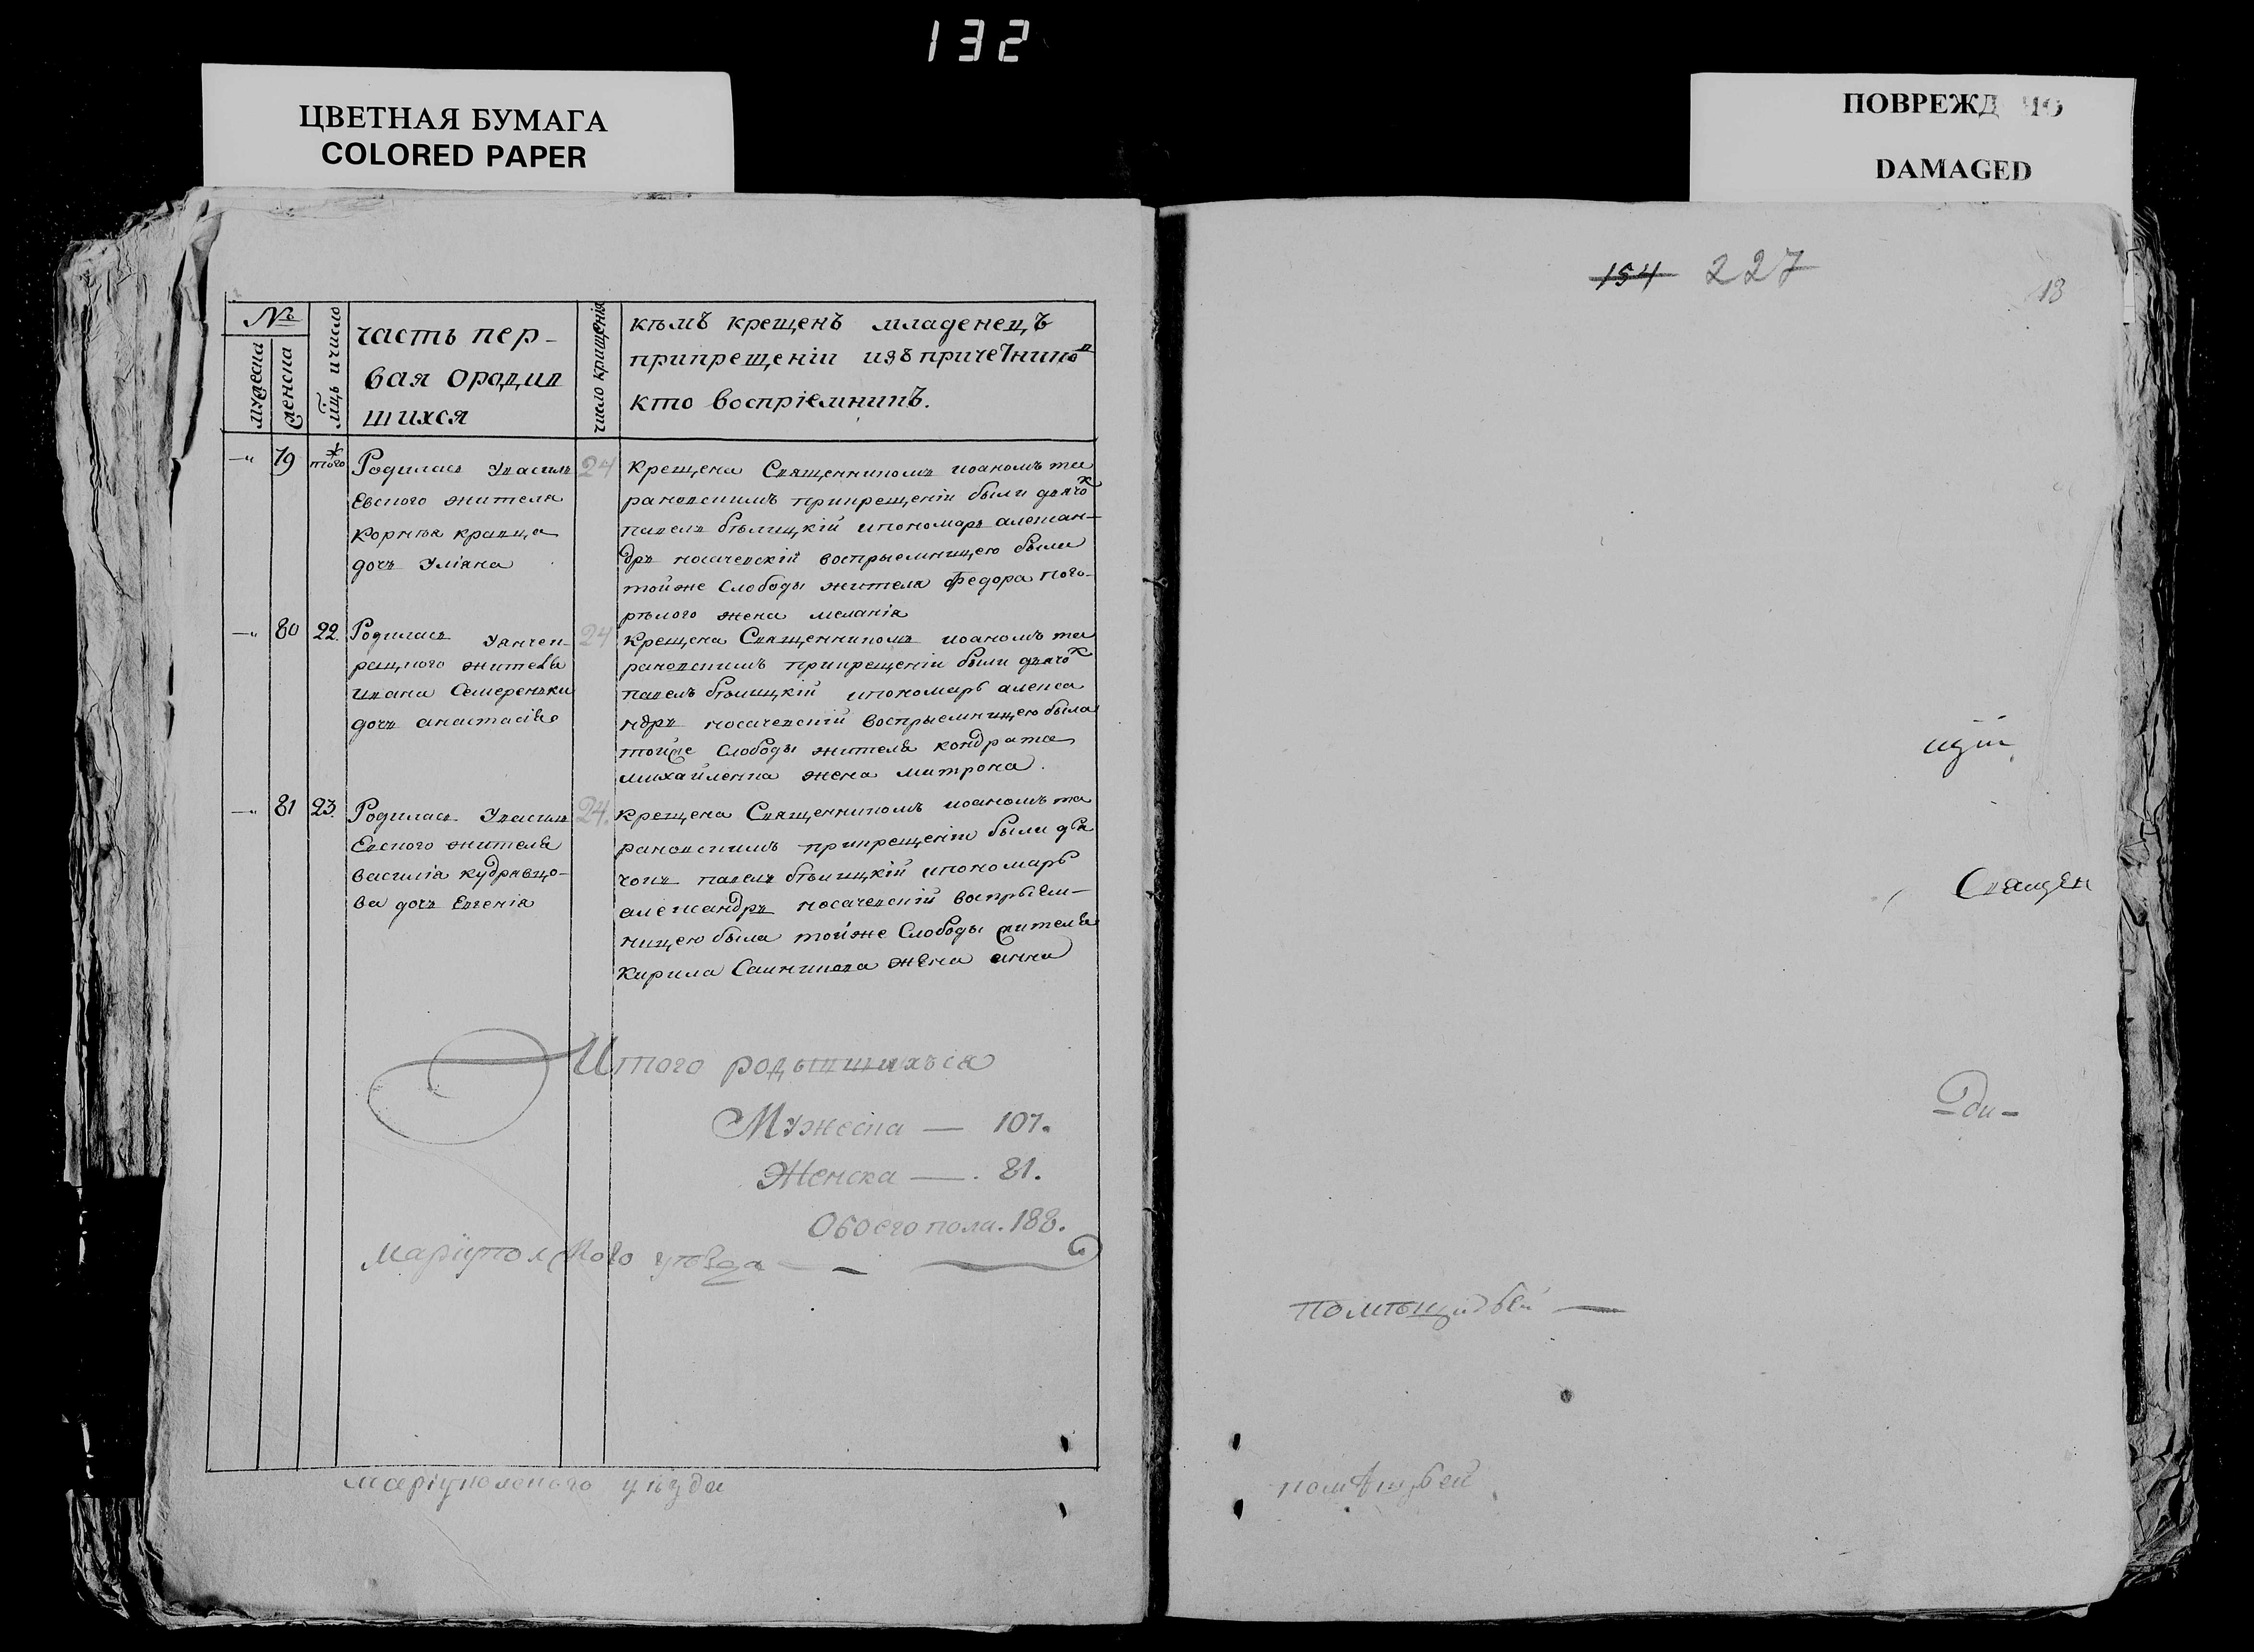 132
ЦВЕТНАЯ БУМАГА
COLORED PAPER
ПОВРЕЖД НО
DAMAGED
№
мужеска
женска
мцъ ичисло
часть пер-
вая ородив
шихся
число крищенія
кѣмъ крещенъ младенецъ
прикрещеніи изъ причетнико в
кто воспріемникъ.
79
того ж
Родилась Увасиль
Евского жителя
Корнѣя кравца
дочь Уліяна
24
крещена Священникомъ иоаномъ та
рановскимъ прикрещеніи были дьячо к
павелъ бѣлицкій ипономарь алексан-
дръ носачевскій воспрыемницею были
тойже Слободы жителя Федора пого-
рѣлого жена меланія
80
22.
Родилась Уянчек-
ракского жителя
ивана Семеренки
дочь анастасія
24
крещена Священникомъ иоаномъ та
рановскимъ прикрещеніи были дьячо к
павелъ бѣлицкій ипономарь алекса
ндръ носачевскій воспрыемницею была
тойже Слободы жителя кондрата
михайленка жена митрона.
81
23.
Родилась Увасиль
Евского жителя
василія кудрявцо-
ва дочь Евгенія
24.
крещена Священникомъ иоаномъ та
рановскимъ прикрещеніи были дья
чокъ павелъ бѣлицкій ипономарь
александръ носачевскій воспрыем-
ницею была тойже Слободы жителя
Кирила жена анна
Итого родывшихъся
Мужеска — 107.
Женска — . 81.
Обоегопола. 188.
маріуполского уѣзда
маріуполского уѣзда
154 227
13
цкій
Священ
помѣщидѣй —